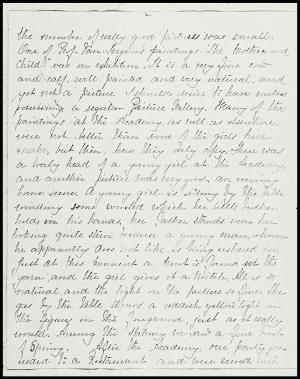 2
The number of really good pictures was small.
One of Prof. Van 's paintings "The Mother and
Child" was on exhibition. It is a very fine cow
and calf, well painted and very natural, and
yet not a picture I should desire to have unless
possessing a regular Picture Gallery. Many of the
paintings at the Academy as well as elsewhere
were not better than some of the girls here
make, but then they only copy. There was
a lovely head of a young girl at the Academy
and another picture was very good, an evening
home scene. A young girl is sitting by the table
winding some worsted which her little brother
holds in his hands, her father stands near her
looking quite stern because a young man, whom
he apparently does not like, is being ushered in,
just at this moment a knot is found in the
yarn and the girl gives it a twitch. It is so
natural, and the light on the picture so fine. The
gas by the table throws a reddish yellow light on
the figures in the foreground, just as it really
would. Among the Statuary we saw a fine bust
of Spring. After the Academy, our party pro-
ceeded to a Restaurant and were served with